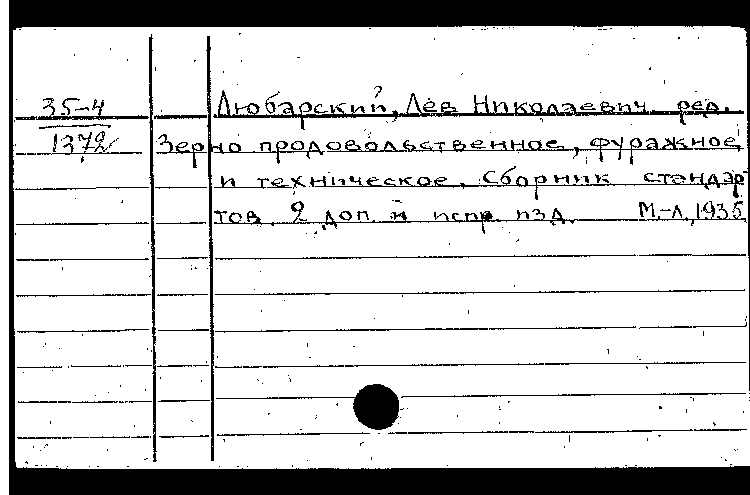 35-4
1372
Любарский, Лев Николаевич, ред.
Зерно продовольственное, фуражное
и техническое. Сборник стандар-
тов. 2 доп. и испр. изд. М.-Л, 1935